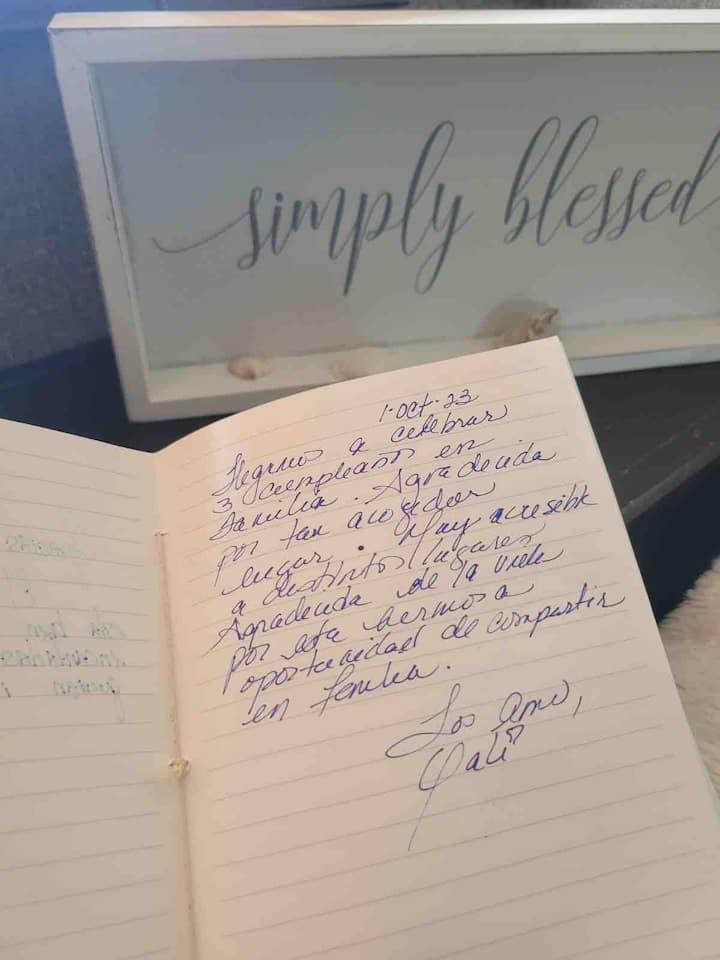 simply blessed
1·Oct·23
Llegamos a celebrar
3 cumpleaños en
familia. Agradecida
por tan acogedor
lugar. Muy accesible
a distintos lugares
Agradecida de la vida
por esta hermosa
oportunidad de compartir
en familia.
Los amo,
Yali